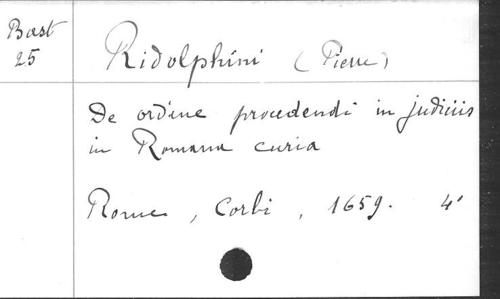 Bast
25
Ridolphini (Pierre)
De ordine procedendi in judiciis
in Romana curia
Rome, Corbi, 1659. 4°